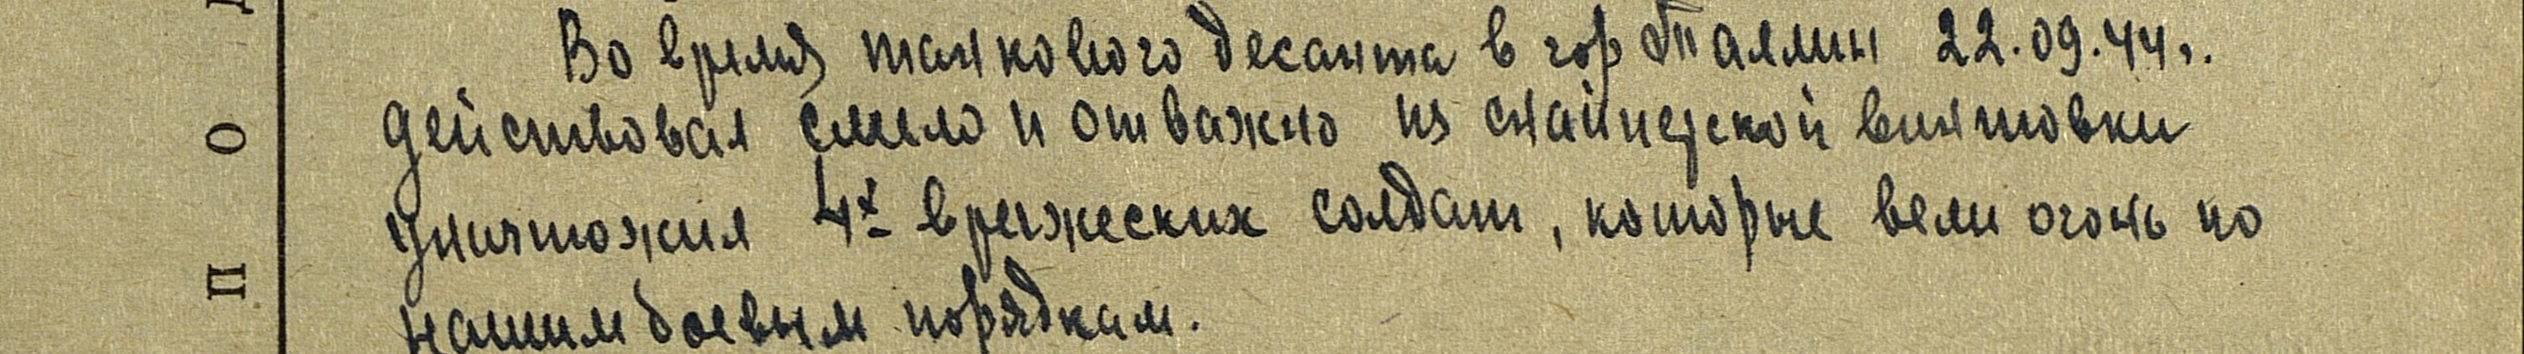 Во время танкового десанта в гор Таллин 22.09.44г.
действовал смело и отважно из снайперской винтовки
уничтожил 4х вражеских солдат, которые вели огонь по
нашим боевым порядкам.
П О